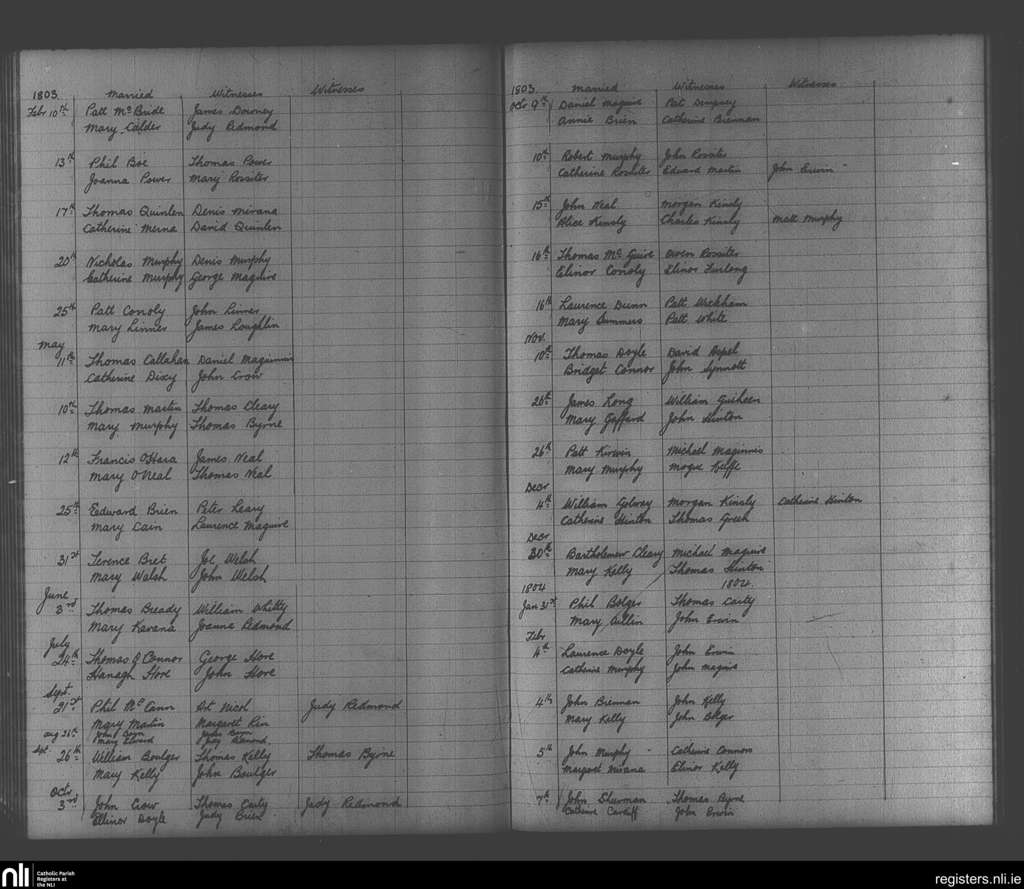 1803. Married Witnesses Witnesses
Febr 10th Patt McBride James Downey
Mary Calder Judy Redmond
13th Phil Boe Thomas Power
Joanna Power Mary Rossiter
17th Thomas Quinlen Denis Mirana
Catherine Merna David Quinlen
20th Nicholas Murphy Denis Murphy
Catherine Murphy George Maguire
25th Patt Conoly John Linnes
Mary Linnes James Loughlin
May
11th Thomas Callahan Daniel Maginnis
Catherine Dixy John Crow
10th Thomas Martin Thomas Cleary
Mary Murphy Thomas Byrne
12th Francis O'Hara James Neal
Mary O'Neal Thomas Neal
25th Edward Brien Peter Leary
Mary Cain Laurence Maguire
31st Terence Bret Joe Welsh
Mary Walsh John Welsh
June
3rd Thomas Bready William Whitty
Mary Kavana Joanna Redmond
July
24th Thomas O'Connor George Hore
Hanagh Hore John Hore
Sept.
21st Phil McCann Art Nicol Judy Redmond
Mary Martin Margaret
Aug 26th John
Mary Judy Redmond
Sept. 26th William Boulger Thomas Kelly Thomas Byrne
Mary Kelly John Boulger
Octr
3rd John Crow Thomas Carty Judy Redmond
Ellinor Doyle Judy Brien
1803. Married Witnesses Witnesses
Octr 9th Daniel Maguire Pat Dempsey
Annie Brien Catherine Brennan
10th Robert Murphy John Rossiter
Catherine Rossiter Edward Martin John Erwin
15th John Neal Morgan Kinsly
Alice Kinsly Charles Kinsly Matt Murphy
16th Thomas McGuire Owen Rossiter
Elinor Conoly Elinor Furlong
16th Laurence Dunn Patt Wickham
Mary Summers Patt White
Novr.
10th Thomas Doyle David Aspel
Bridget Connor John Synnott
26th James Long William
Mary Gafford John Hinton
26th Patt Kirwin Michael Maginnis
Mary Murphy Mogue Keffe
Decr
4th William Golway Morgan Kinsly Catherine Hinton
Catherine Hinton Thomas Green
Decr
30th Bartholemew Cleary Michael Maguire
Mary Kelly Thomas Hinton
1804 1804.
Jan 31st Phil Bolger Thomas Carty
Mary Cullin John Erwin
Febr
4th Laurence Doyle John Erwin
Catherine Murphy John Maguire
4th John Brennan John Kelly
Mary Kelly John Bolger
5th John Murphy Catherine Connors
Margaret Mirana Elinor Kelly
7th John Sherman Thomas Byrne
Catherine Cardiff John Erwin
nli Catholic Parish
Registers at
the NLI
registers.nli.ie